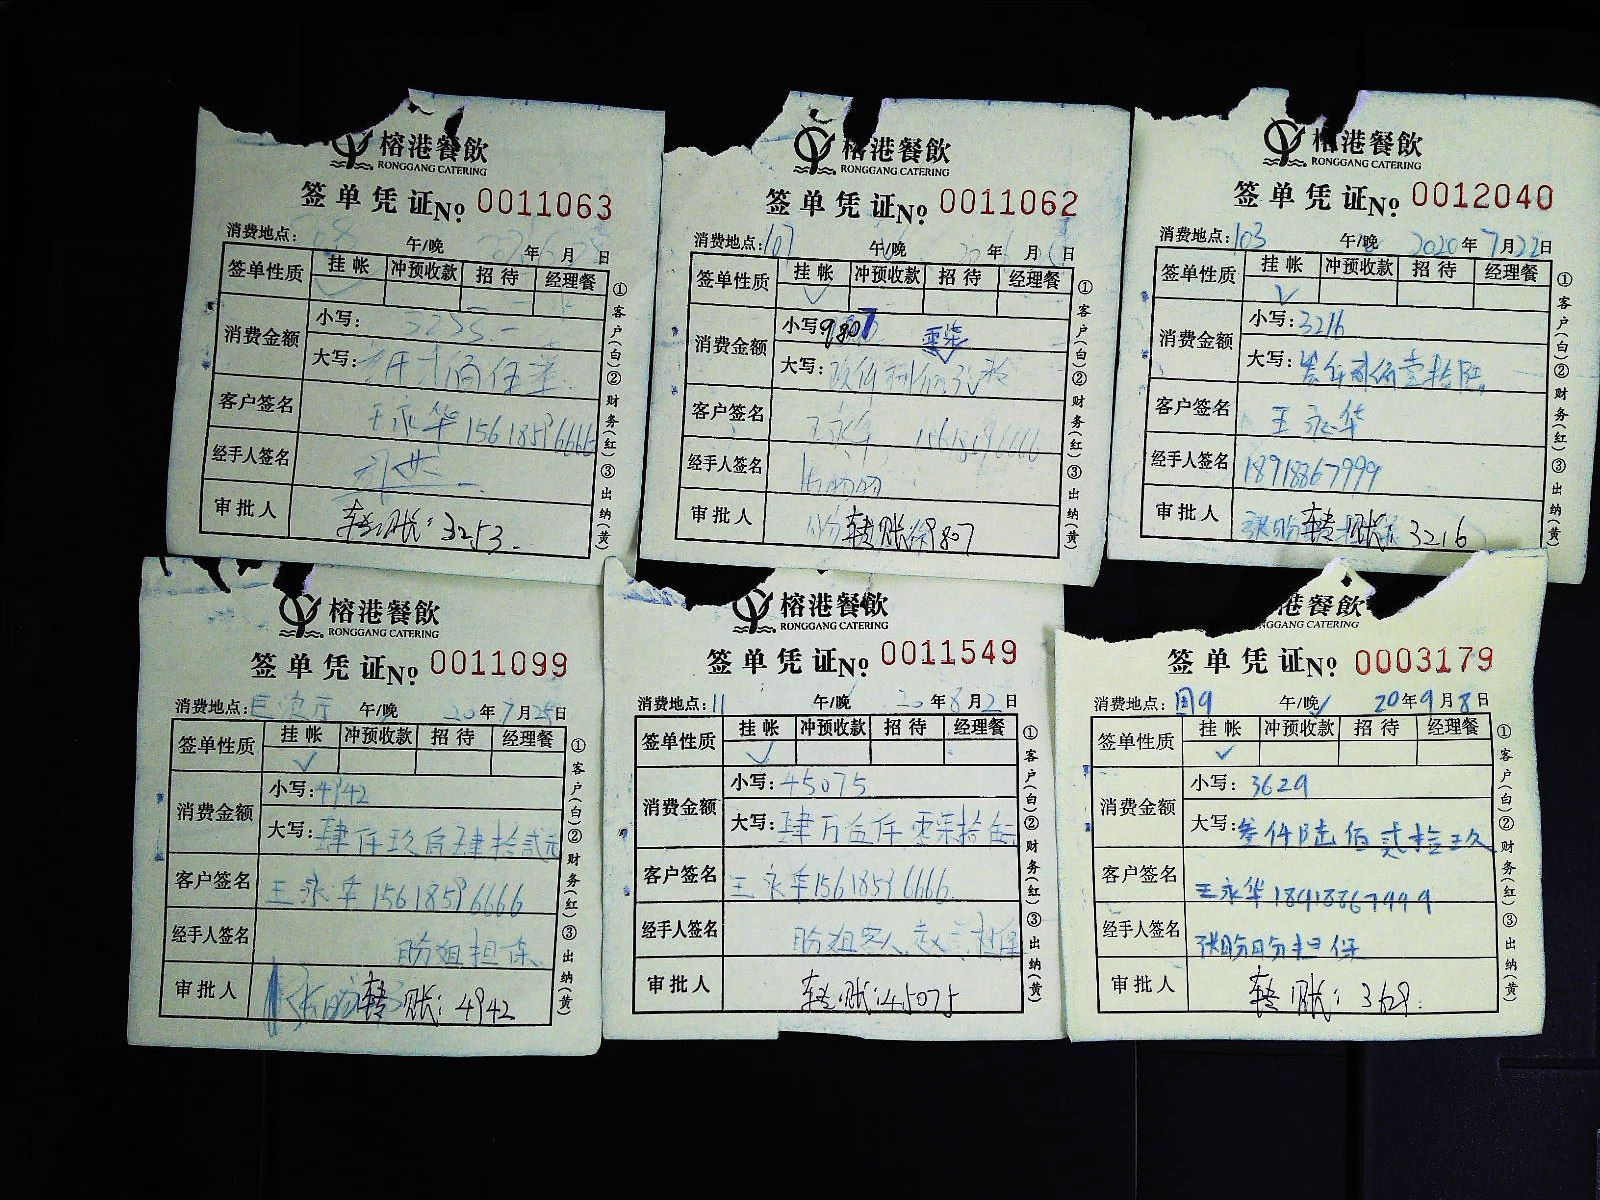 榕港餐飲
RONGGANG CATERING
签单凭证No. 0011063
消费地点: 午/晚 年 月 日
签单性质 挂帐 冲预收款 招待 经理餐
消费金额 小写:
大写:
客户签名 王永华 15618596666
经手人签名
审批人 转账:3253.
①客户(白)②财务(红)③出纳(黄)
榕港餐飲
RONGGANG CATERING
签单凭证No. 0011062
消费地点:107 午/晚 20年6月 日
签单性质 挂帐 冲预收款 招待 经理餐
消费金额 小写:9807 零柒
大写:玖仟捌佰
客户签名 王永华 15618596666
经手人签名
审批人 转账:9807
①客户(白)②财务(红)③出纳(黄)
榕港餐飲
RONGGANG CATERING
签单凭证No. 0012040
消费地点:103 午/晚 2020年7月22日
签单性质 挂帐 冲预收款 招待 经理餐
消费金额 小写:3216
大写:叁仟贰佰壹拾陆
客户签名 王永华
经手人签名 18918867999
审批人 转账 3216
①客户(白)②财务(红)③出纳(黄)
榕港餐飲
RONGGANG CATERING
签单凭证No. 0011099
消费地点: 午/晚 20年7月25日
签单性质 挂帐 冲预收款 招待 经理餐
消费金额 小写:4942
大写:肆仟玖佰肆拾贰元
客户签名 王永华 15618596666
经手人签名 盼姐担保
审批人 转账:4942
①客户(白)②财务(红)③出纳(黄)
榕港餐飲
RONGGANG CATERING
签单凭证No. 0011549
消费地点:11 午/晚 20年8月2日
签单性质 挂帐 冲预收款 招待 经理餐
消费金额 小写:45075
大写:肆万伍仟零柒拾伍
客户签名 王永华15618596666
经手人签名 盼姐客人 担保
审批人 转账:45075
①客户(白)②财务(红)③出纳(黄)
港餐飲
NGGANG CATERING
签单凭证No. 0003179
消费地点:国9 午/晚 20年9月8日
签单性质 挂帐 冲预收款 招待 经理餐
消费金额 小写:3629
大写:叁仟陆佰贰拾玖
客户签名 王永华18918867999
经手人签名 张盼盼担保
审批人 转账:3629.
①客户(白)②财务(红)③出纳(黄)